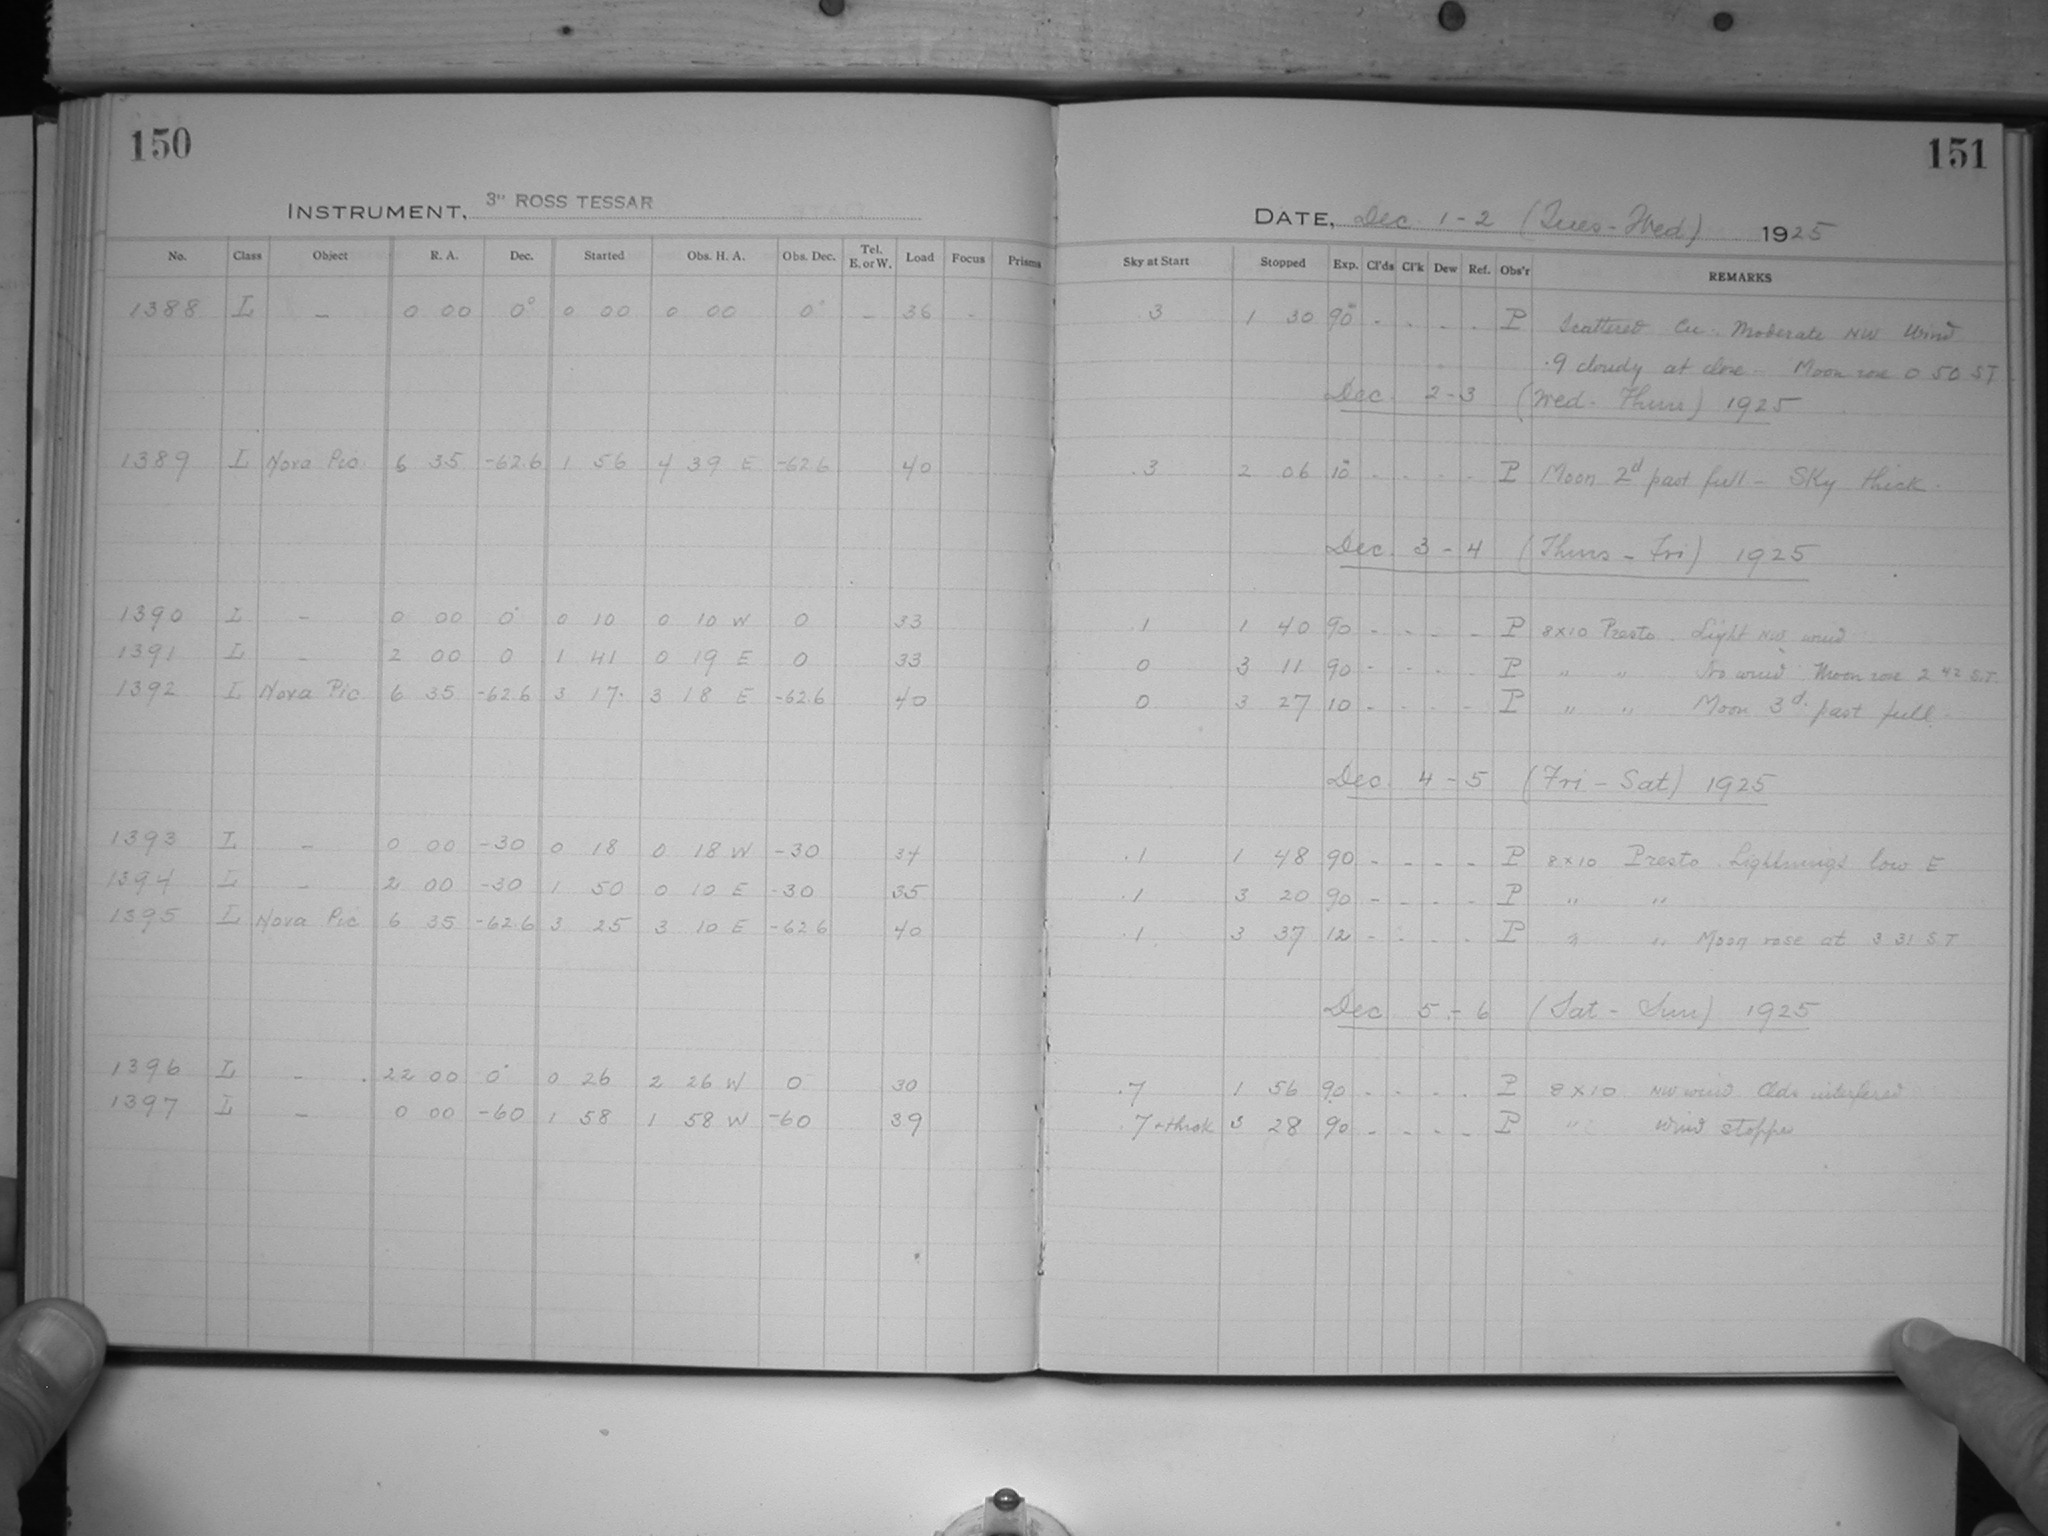 150
INSTRUMENT, 3" ROSS TESSAR
No. Class Object R. A. Dec. Started Obs. H. A. Obs. Dec. Tel. E. or W. Load Focus Prisms
1388 L - 0 00 0° 0 00 0 00 0° - 36 -
1389 L Nova Pic. 6 35 -62.6 1 56 4 39 E -62.6 40
1390 L - 0 00 0° 0 10 0 10 W 0 33
1391 L - 2 00 0 1 41 0 19 E 0 33
1392 L Nova Pic 6 35 -62.6 3 17 3 18 E -62.6 40
1393 L - 0 00 -30 0 18 0 18 W -30 34
1394 L - 2 00 -30 1 50 0 10 E -30 35
1395 L Nova Pic 6 35 -62.6 3 25 3 10 E -62.6 40
1396 L - 22 00 0° 0 26 2 26 W 0 30
1397 L - 0 00 -60 1 58 1 58 W -60 39
151
DATE, Dec. 1-2 (Tues-Wed) 1925
Sky at Start Stopped Exp. Cl'ds Cl'k Dew Ref. Obs'r REMARKS
.3 1 30 90 - - - - P Scattered Cu. Moderate NW Wind
.9 cloudy at close - Moon rose 0 50 ST
Dec. 2-3 (Wed- Thurs) 1925
.3 2 06 10 - - - - P Moon 2d past full - Sky thick.
Dec. 3-4 (Thurs - Fri) 1925
.1 1 40 90 - - - - P 8x10 Presto. Light NW wind
0 3 11 90 - - - - P " " No wind Moon rose 2 42 S.T.
0 3 27 10 - - - - P " " Moon 3d past full.
Dec. 4-5 (Fri - Sat) 1925
.1 1 48 90 - - - - P 8x10 Presto. Lightnings low E
.1 3 20 90 - - - - P " "
.1 3 37 12 - - - - P " " Moon rose at 3 31 S T
Dec 5-6 (Sat - Sun) 1925
.7 1 56 90 - - - - P 8x10 NW wind Clds interfered
.7 + thick 3 28 90 - - - - P " Wind stopped